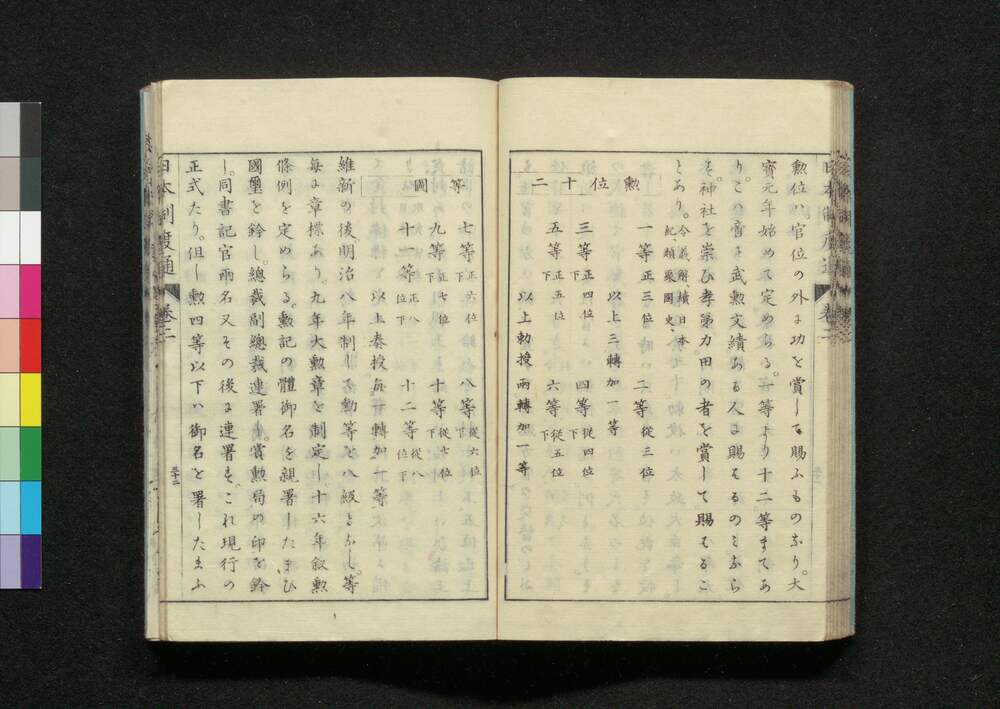 勲位ハ官位の外に功を賞して賜ふものなり。大
寳元年始めて定めらる。一等より十二等まてあ
り。こハ嘗に武勲文績ある人に賜はるのミなら
す。神社を崇ひ孝弟力田の者を賞して賜はるこ
とあり。令義解、續日本
紀、類聚國史、
勲位十二
一等正三位 二等從三位
以上三轉加一等
三等正四位下 四等從四位下
五等正五位下 六等從五位下
以上勅授兩轉加一等
等圖
七等正六位下 八等從六位下
九等正七位下 十等從七位下
十一等正八位下 十二等從八位下
以上奏授毎一轉加一等
維新の後、明治八年制して勲等を八級となし。等
毎に章標あり。九年大勲章を制定し十六年叙勲
條例を定めらる。勲記の體御名を親署したまひ
國璽を鈐し。總裁副總裁連署し。賞勲局の印を鈐
し。同書記官兩名又その後に連署す。これ現行の
正式たり。但し勲四等以下ハ御名を署したまふ
日本制度通 卷二
三十二